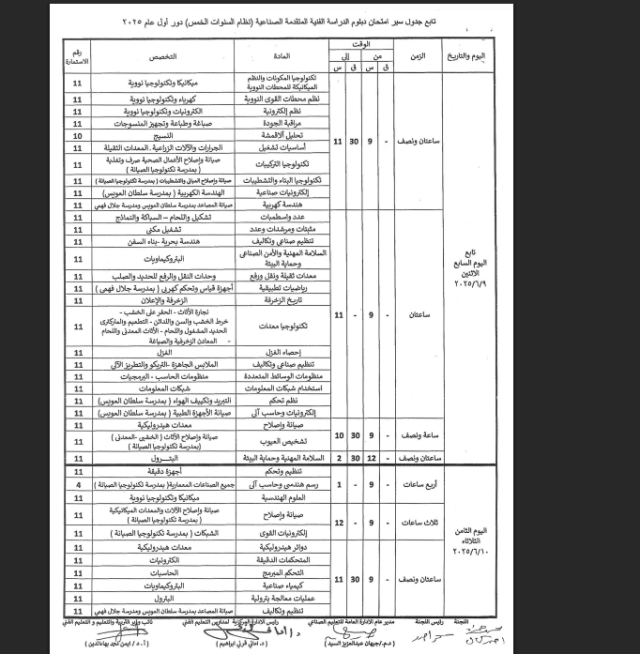 تابع جدول سير امتحان دبلوم الدراسة الفنية المتقدمة الصناعية (نظام السنوات الخمس) دور أول عام ٢٠٢٥
اليوم والتاريخ | الزمن | الوقت | المادة | التخصص | رقم الاستمارة
من | إلى
ق | س | ق | س
تابع اليوم السابع الاثنين ٢٠٢٥/٦/٩
ساعتان ونصف | - | 9 | 30 | 11
تكنولوجيا المكونات والنظم الميكانيكة للمحطات النووية | ميكانيكا وتكنولوجيا نووية | 11
نظم محطات القوى النووية | كهرباء وتكنولوجيا نووية | 11
نظم إلكترونية | الكترونيات وتكنولوجيا نووية | 11
مراقبة الجودة | صباغة وطباعة وتجهيز المنسوجات | 11
تحليل الأقمشة | النسيج | 10
أساسيات تشغيل | الجرارات والآلات الزراعية - المعدات الثقيلة | 11
تكنولوجيا التركيبات | صيانة وإصلاح الأعمال الصحية صرف وتغذية ( بمدرسة تكنولوجيا الصيانة ) | 11
تكنولوجيا البناء والتشطيبات | صيانة وإصلاح المباني والتشطيبات ( بمدرسة تكنولوجيا الصيانة ) | 11
إلكترونيات صناعية | الهندسة الكهربية ( بمدرسة سلطان العويس) | 11
هندسة كهربية | صيانة المصاعد بمدرسة سلطان العويس ومدرسة جلال فهمي | 11
ساعتان | - | 9 | - | 11
عدد واسطمبات | تشكيل واللحام – السباكة والنماذج | 11
مثبتات ومرشدات وعدد | تشغيل مكني | 11
تنظيم صناعي وتكاليف | هندسة بحرية -بناء السفن | 11
السلامة المهنية والأمن الصناعى وحماية البيئة | البتروكيماويات | 11
معدات ثقيلة ونقل ورفع | وحدات النقل والرفع للحديد والصلب | 11
رياضيات تطبيقية | أجهزة قياس وتحكم كهربى ( بمدرسة جلال فهمى ) | 11
تاريخ الزخرفة | الزخرفة والإعلان | 11
تكنولوجيا معدات | نجارة الأثاث - الحفر على الخشب - خرط الخشب والسن واللدائن - التطعيم والماركتري الحديد المشغول واللحام - الأثاث المعدنى واللحام - المعادن الزخرفية والصياغة | 11
إحصاء الغزل | الغزل | 11
تنظيم صناعى وتكاليف | الملابس الجاهزة -التريكو والتطريز الآلى | 11
منظومات الوسائط المتعددة | منظومات الحاسب - البرمجيات | 11
استخدام شبكات المعلومات | شبكات المعلومات | 11
نظم تحكم | التبريد وتكييف الهواء ( بمدرسة سلطان العويس) | 11
إلكترونيات وحاسب آلى | صيانة الأجهزة الطبية ( بمدرسة سلطان العويس) | 11
ساعة ونصف | - | 9 | 30 | 10
صيانة وإصلاح | معدات هيدروليكية | 11
تشخيص العيوب | صيانة وإصلاح الأثاث ( الخشبى -المعدنى ) (بمدرسة تكنولوجيا الصيانة ) | 11
ساعتان ونصف | - | 12 | 30 | 2
السلامة المهنية وحماية البيئة | البترول | 11
اليوم الثامن الثلاثاء ٢٠٢٥/٦/١٠
أربع ساعات | - | 9 | - | 1
تنظيم وتحكم | أجهزة دقيقة | 11
رسم هندسى وحاسب آلى | جميع الصناعات المعمارية( بمدرسة تكنولوجيا الصيانة ) | 4
ثلاث ساعات | - | 9 | - | 12
العلوم الهندسية | ميكانيكا وتكنولوجيا نووية | 11
صيانة وإصلاح | صيانة وإصلاح الآلات والمعدات الميكانيكية ( بمدرسة تكنولوجيا الصيانة ) | 11
إلكترونيات القوى | الشبكات ( بمدرسة تكنولوجيا الصيانة ) | 11
ساعتان ونصف | - | 9 | 30 | 11
دوائر هيدروليكية | معدات هيدروليكية | 11
المتحكمات الدقيقة | الكترونيات | 11
التحكم المبرمج | الحاسبات | 11
كيمياء صناعية | البتروكيماويات | 11
عمليات معالجة بترولية | البترول | 11
تنظيم وتكاليف | صيانة المصاعد بمدرسة سلطان العويس ومدرسة جلال فهمي | 11
اللجنة
رئيس اللجنة
مدير عام الإدارة العامة للتعليم الصناعي
( د.م/جيهان عبدالعزيز السيد )
رئيس الإدارة المركزية لمدارس التعليم الفني
( د. أماني قرني ابراهيم )
نائب وزير التربية والتعليم و التعليم الفني
( أ.د/ أيمن نجد بهاءالدين )